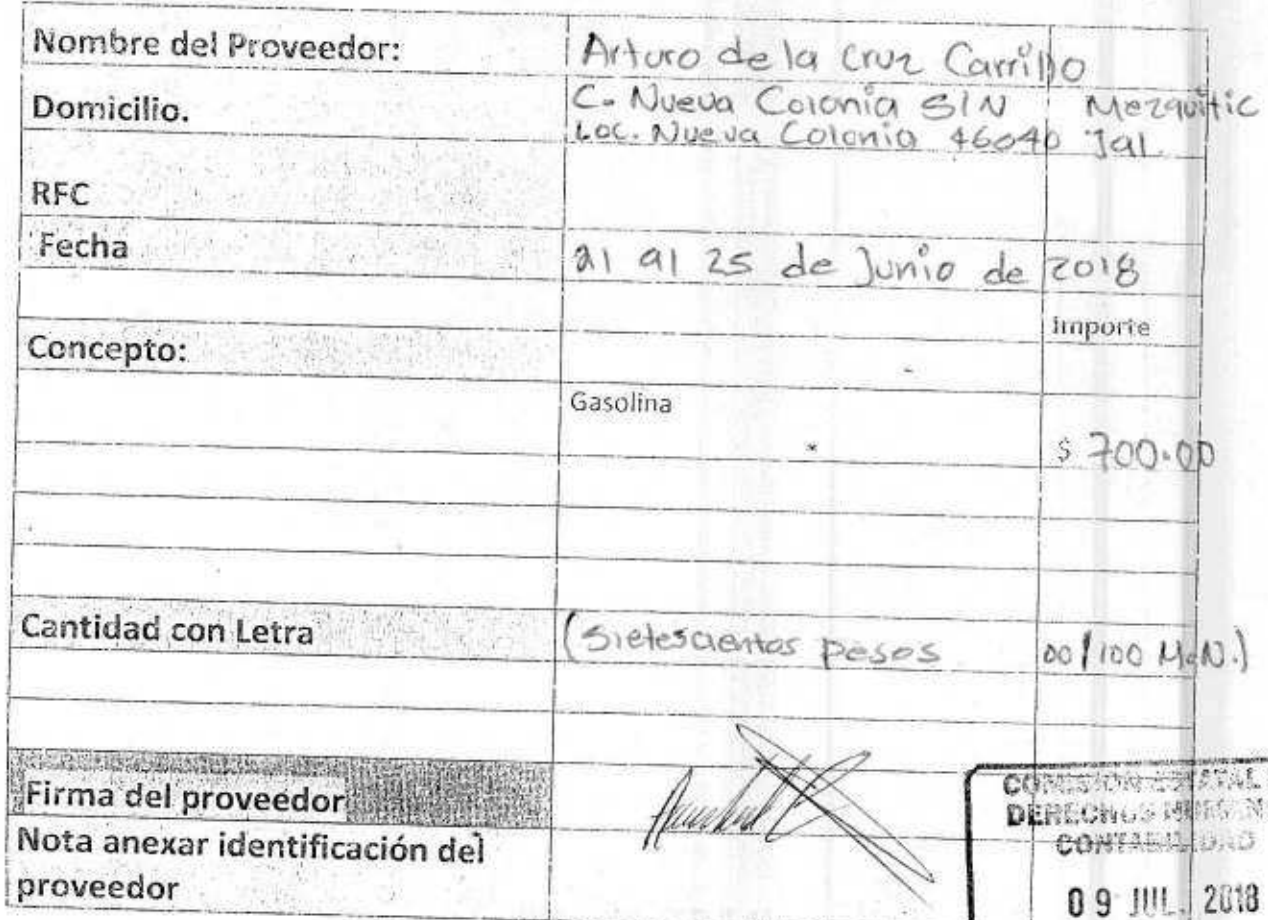 Nombre del Proveedor: Arturo de la Cruz Carrillo
Domicilio. C. Nueva Colonia S/N Mezquitic
Loc. Nueva Colonia 46040 Jal.
RFC
Fecha 21 al 25 de Junio de 2018
Importe
Concepto:
Gasolina
$ 700.00
Cantidad con Letra (Sietescientos pesos 00/100 M.N.)
Firma del proveedor
Nota anexar identificación del
proveedor
COMISION ESTATAL
DERECHOS HUMAN
CONTABILIDAD
09 JUL. 2018